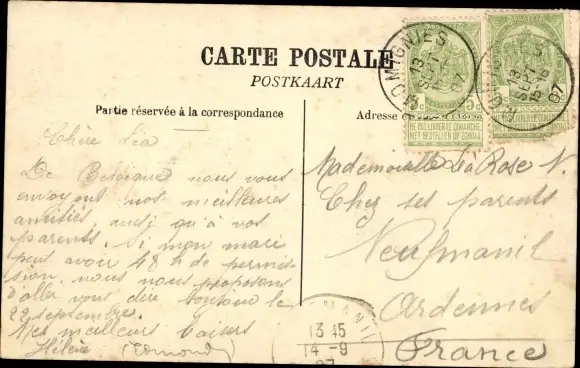 CARTE POSTALE
POSTKAART
Partie réservée à la correspondance
Adresse
MOMIGNIES
13
SEPT
07
5c
5c
NE PAS LIVRER LE DIMANCHE
NIET BESTELLEN OP ZONDAG
Chère Léa
De Belgique nous vous
envoyons nos meilleures
amitiés ainsi qu'à vos
parents. Si mon mari
peut avoir 48 h de permis-
sion, nous nous proposons
d'aller vous dire bonjour le
22 septembre.
Mes meilleurs baisers
Hélène (Edmond)
Mademoiselle Léa Rose N.
Chez ses parents
Neufmanil
Ardennes
France
MANIL
13 45
14 -9
07